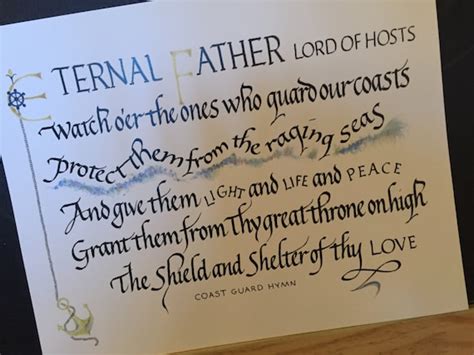 ETERNAL FATHER LORD OF HOSTS
Watch o'er the ones who guard our coasts
Protect them from the raging seas
And give them LIGHT and LIFE and PEACE
Grant them from Thy great throne on high
The Shield and Shelter of thy LOVE
COAST GUARD HYMN